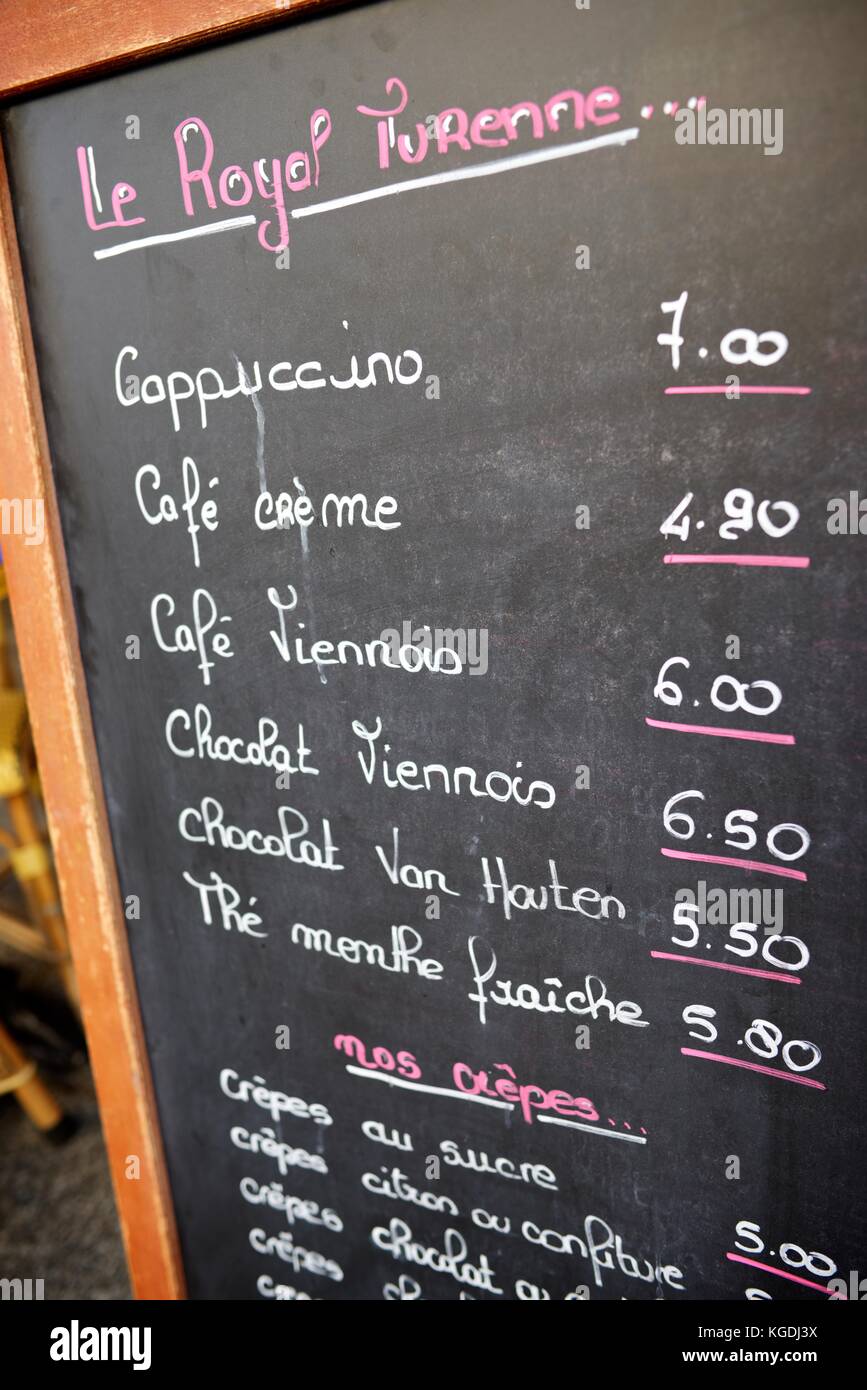 Le Royal Turenne...
Cappuccino 7.00
Café crème 4.90
Café Viennois 6.00
Chocolat Viennois 6.50
Chocolat Van Houten 5.50
Thé menthe fraîche 5.80
nos crêpes...
Crêpes au sucre 5.00
Crêpes citron ou confiture
Crêpes chocolat
Crêpes
alamy
Image ID: KGDJ3X
www.alamy.com